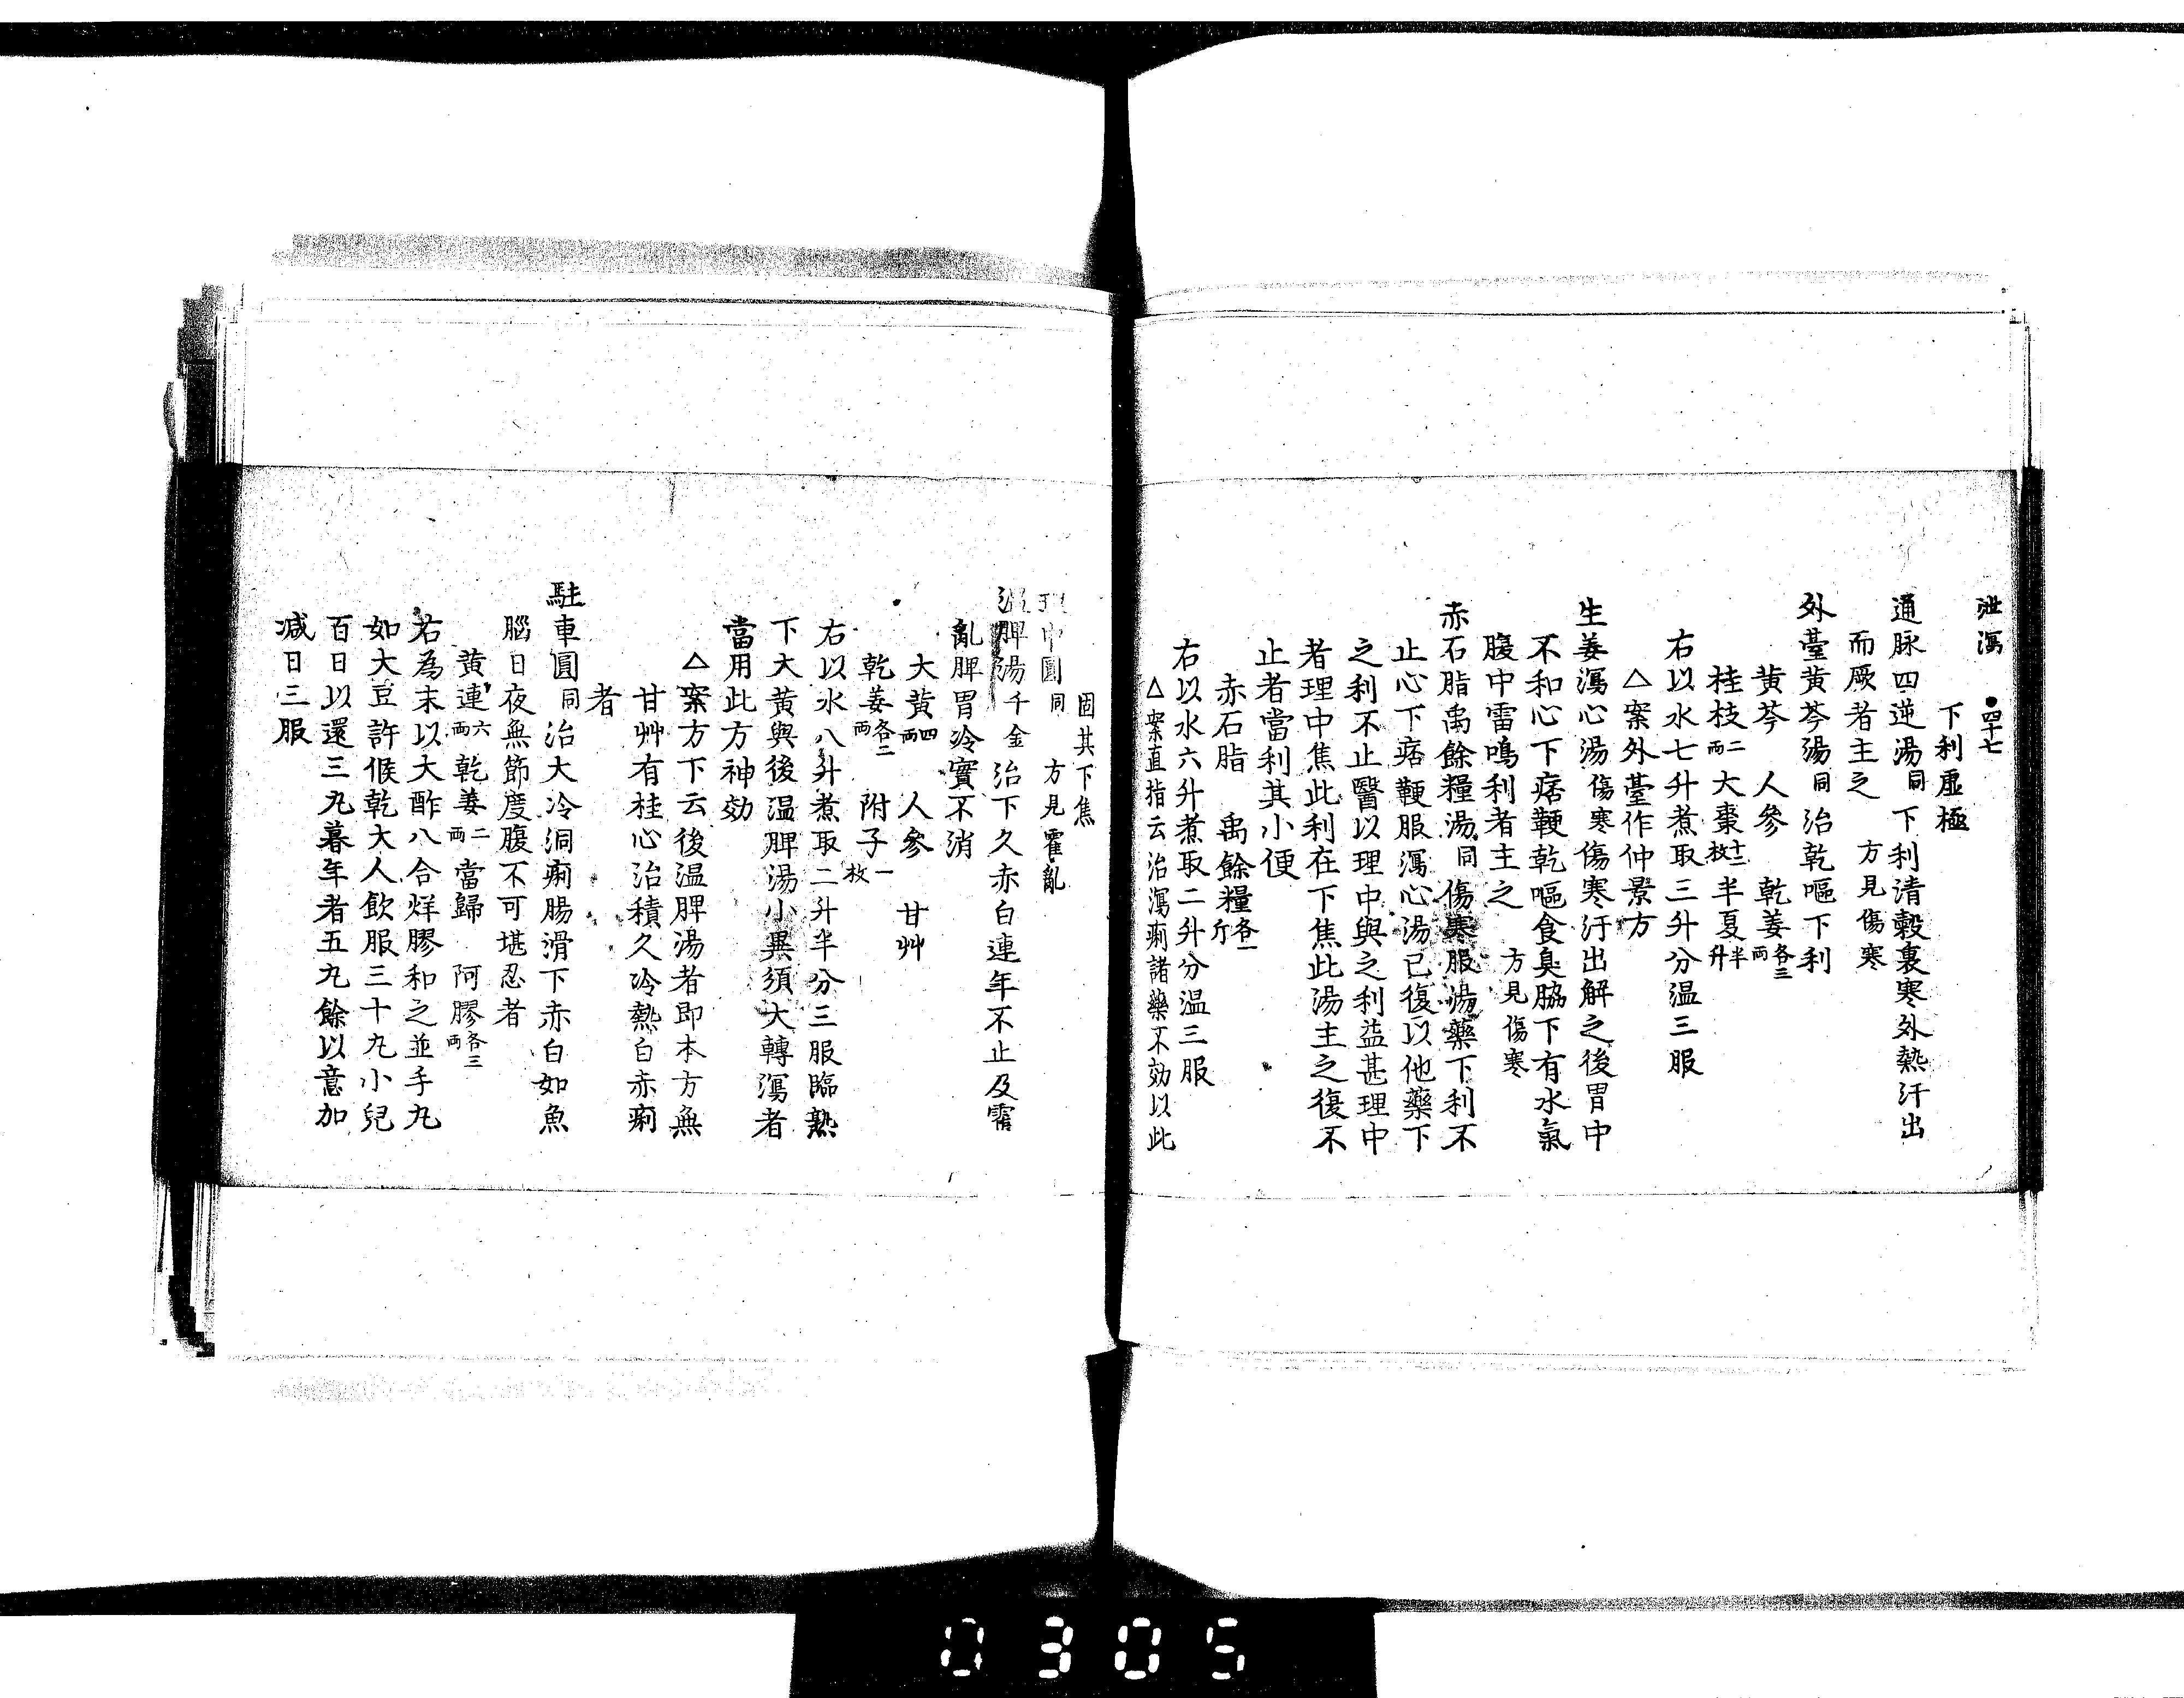 泄瀉 ●四十七
下利虛極
通脉四逆湯同下利清穀裏寒外熱汗出
而厥者主之 方見傷寒
外臺黄芩湯同治乾嘔下利
黄芩 人參 乾姜各三兩
桂枝二兩 大棗十二枚 半夏半升
右以水七升煮取三升分温三服
△案外臺作仲景方
生姜瀉心湯傷寒傷寒汗出解之後胃中
不和心下痞鞕乾嘔食臭脇下有水氣
腹中雷鳴利者主之 方見傷寒
赤石脂禹餘糧湯同傷寒服湯藥下利不
止心下痞鞕服瀉心湯已復以他藥下
之利不止醫以理中與之利益甚理中
者理中焦此利在下焦此湯主之復不
止者當利其小便
赤石脂 禹餘糧各一斤
右以水六升煮取二升分温三服
△案直指云治瀉痢諸藥不効以此
固其下焦
理中圓同 方見霍亂
温脾湯千金治下久赤白連年不止及霍
亂脾胃冷實不消
大黄四兩 人參 甘艸
乾姜各二兩 附子一枚
右以水八升煮取二升半分三服臨熟
下大黄與後温脾湯小異須大轉瀉者
當用此方神効
△案方下云後温脾湯者即本方無
甘艸有桂心治積久冷熱白赤痢
者
駐車圓同治大冷洞痢腸滑下赤白如魚
腦日夜無節度腹不可堪忍者
黄連六兩 乾姜二兩 當歸 阿膠各三兩
右為末以大酢八合烊膠和之並手丸
如大豆許候乾大人飲服三十丸小兒
百日以還三丸暮年者五丸餘以意加
减日三服
0305